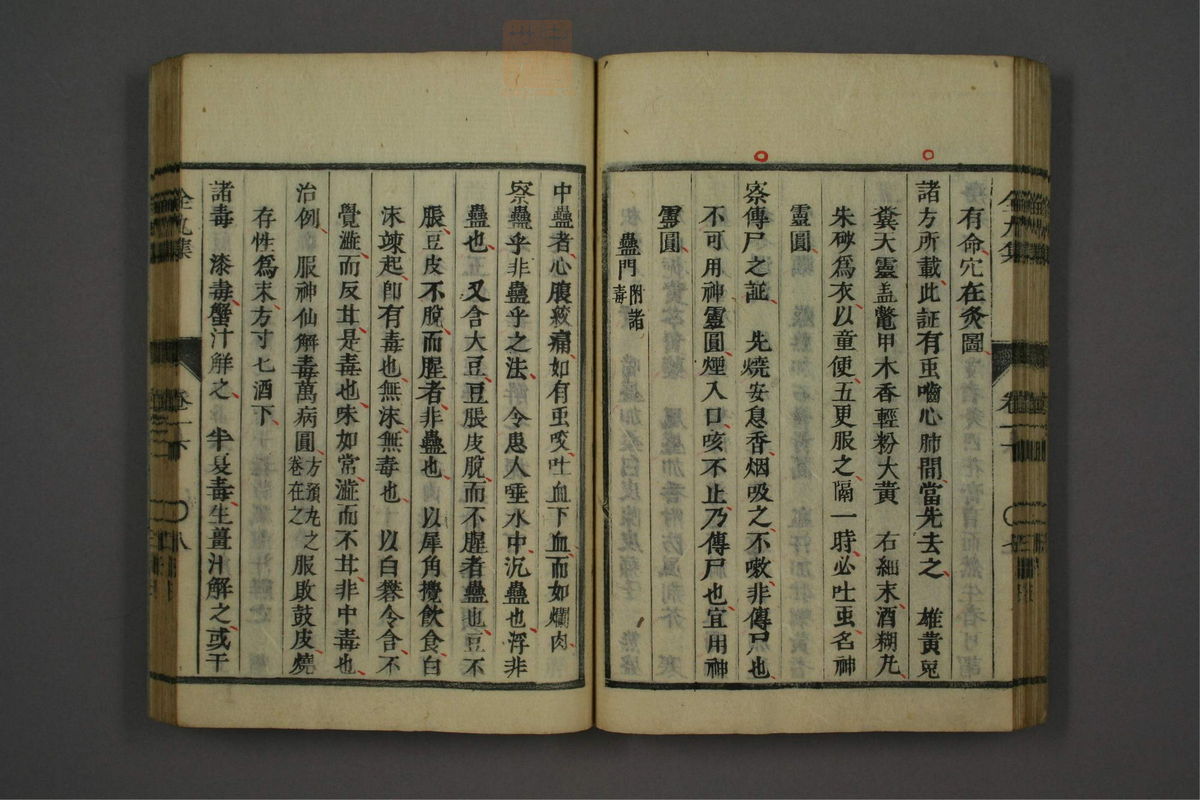 有命穴在灸圖
諸方所載此証有䖝嚙心肺間當先去之　雄黃兎
糞天靈盖鼈甲木香輕粉大黃　右細末酒糊丸
朱砂爲衣以童便五更服之隔一時必吐䖝名神
靈圓
察傳尸之証　先燒安息香烟吸之不嗽非傳尸也
不可用神靈圓煙入口咳不止乃傳尸也宜用神
靈圓
蠱門附諸毒
中蠱者心腹絞痛如有䖝咬吐血下血而如爛肉
察蠱乎非蠱乎之法　令患人唾水中沉蠱也浮非
蠱也　又含大豆豆脹皮脫而不腥者蠱也豆不
脹豆皮不脫而腥者非蠱也　以犀角攪飲食白
沫竦起卽有毒也無沫無毒也　以白礬令含不
覺澁而反甘是毒也味如常澁而不甘非中毒也
治例　服神仙解毒萬病圓方須丸之卷在之服敗鼓皮燒
存性爲末方寸七酒下
諸毒　漆毒蟹汁解之　半夏毒生薑汁解之或干
全九集　卷二六　八